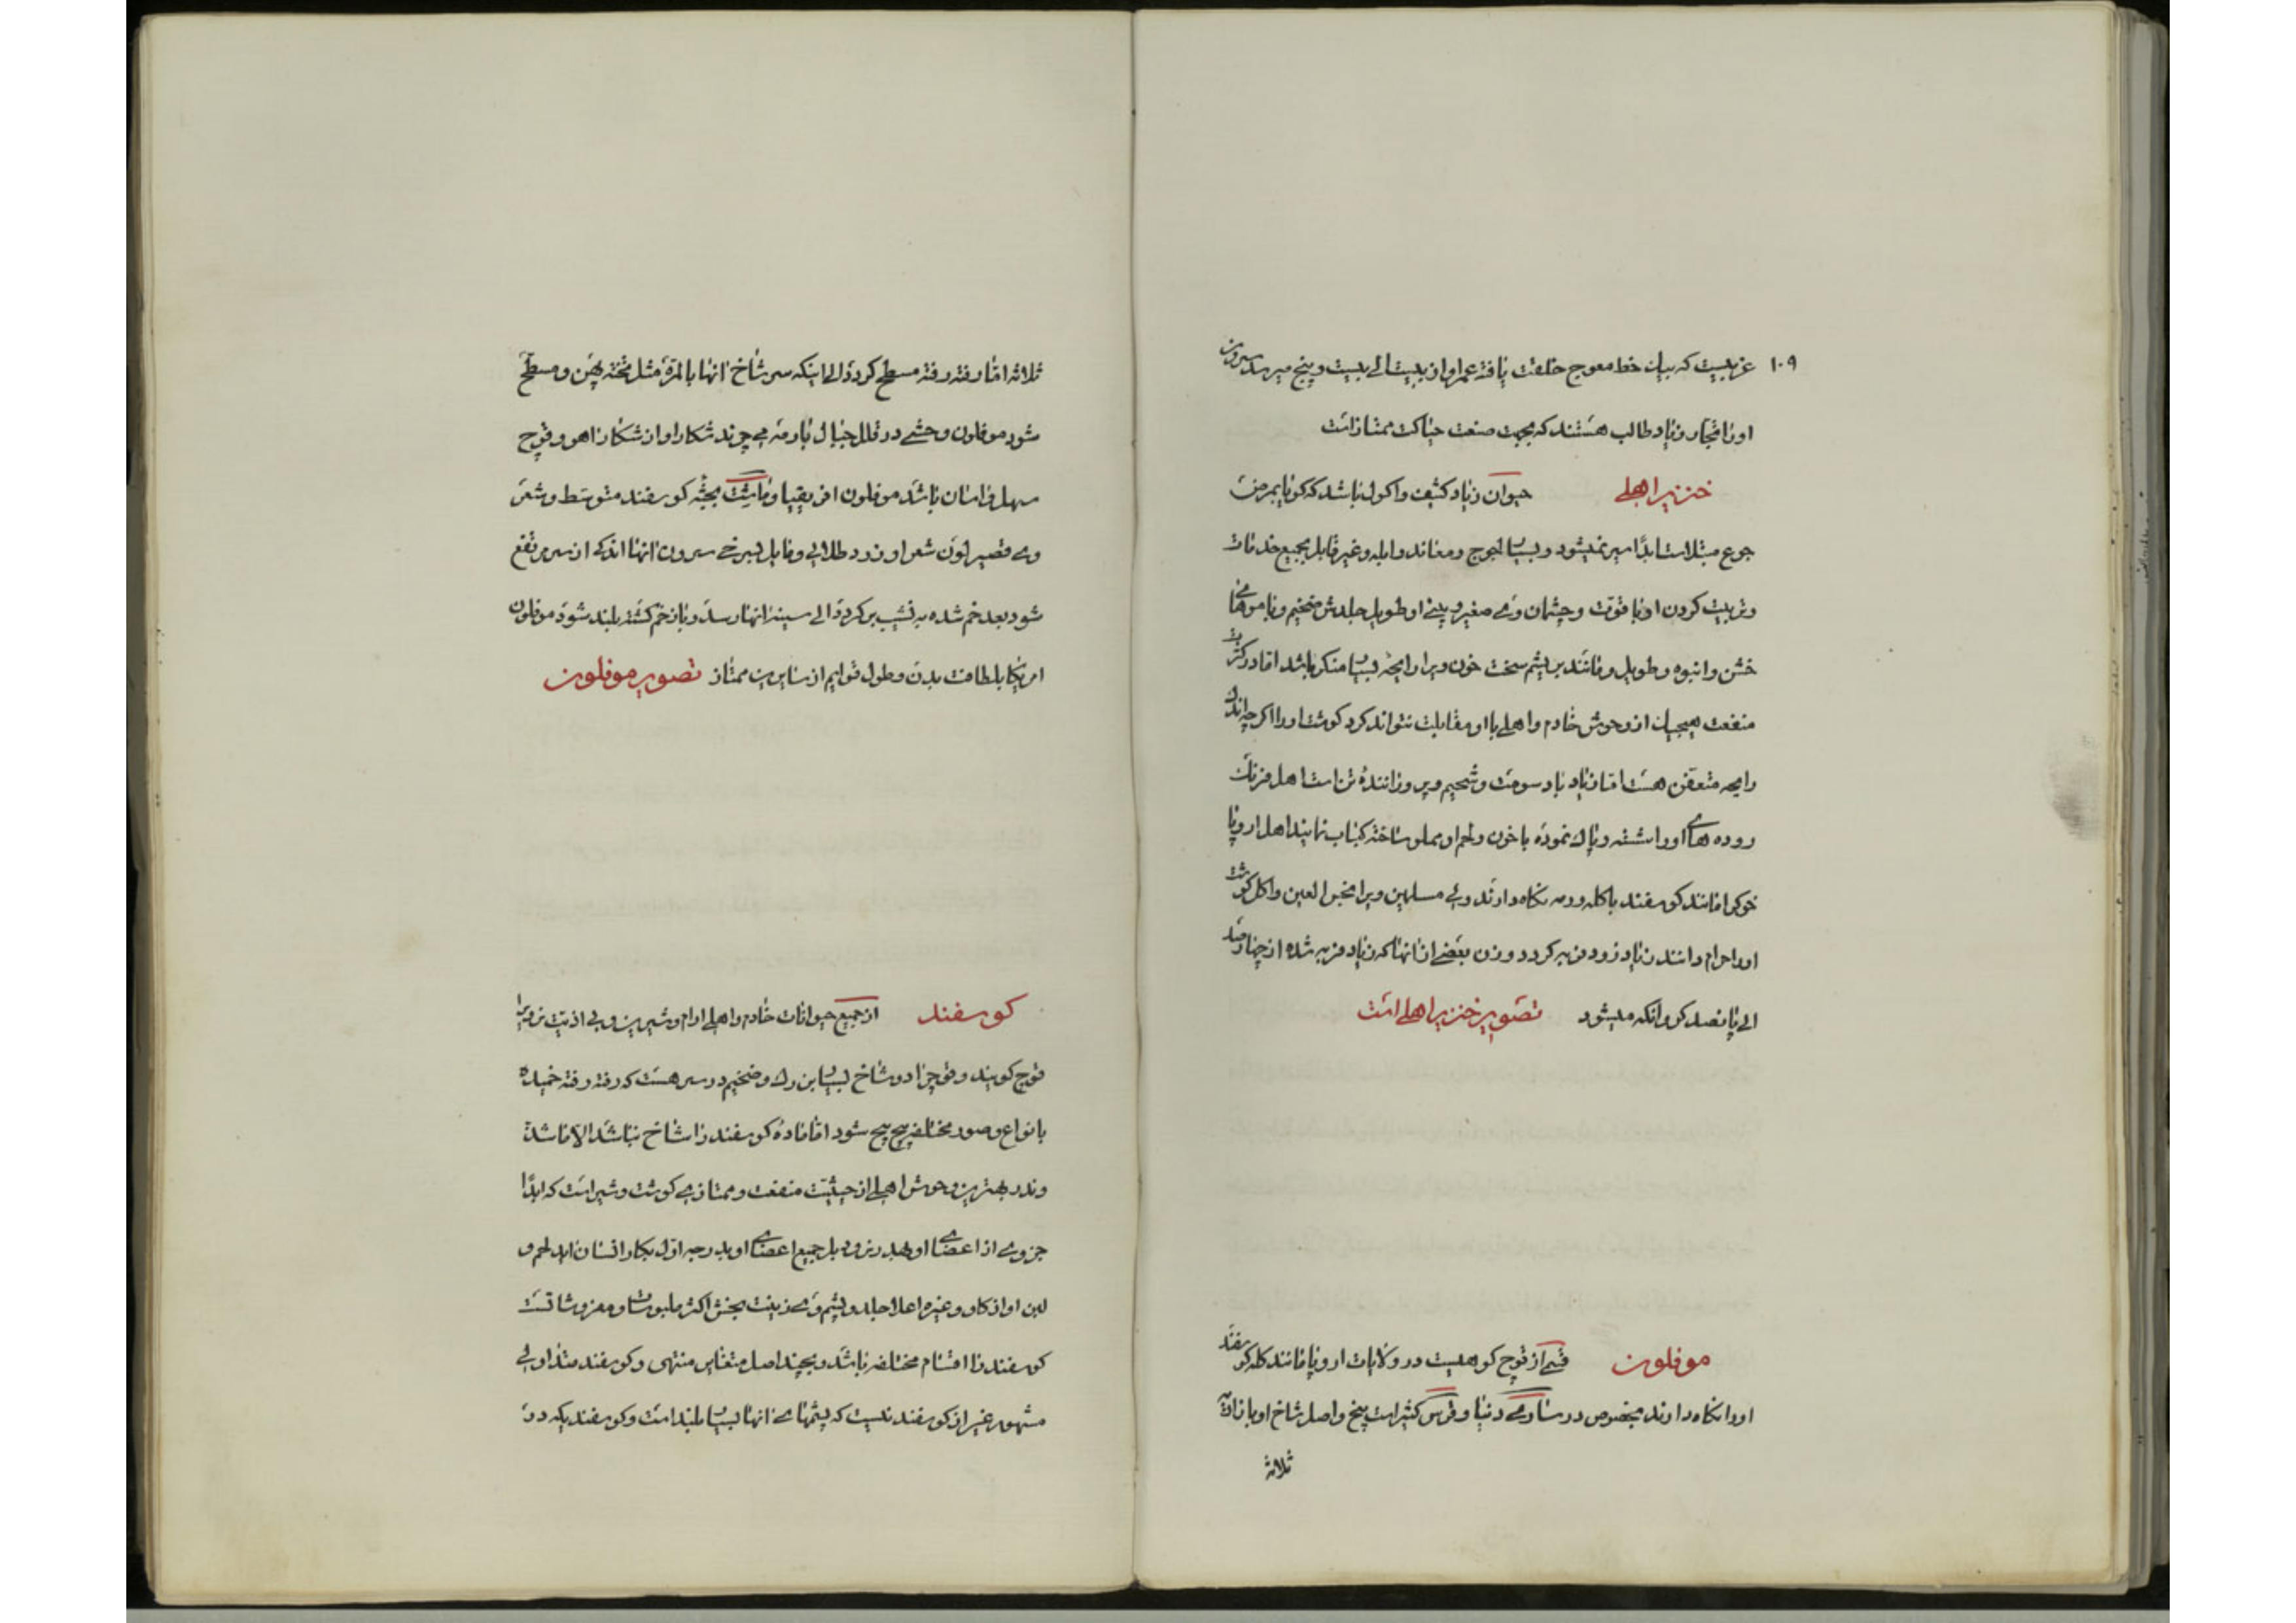 ۱۰۹
غریبیست که بیک خط معوج خلقت یافته عمر او از بیست الی بیست و پنج میرسد سرون
او را نجار زیاد طالب هستند که بجهت صنعت حیاکت ممتاز است
خنزیر اهلی حیوان زیاد کثیف و اکول باشد که گویا بمرض
جوع مبتلاست ابدًا سیر نمیشود و بسیار لجوج و معاند و ابله و غیر قابل بجمیع خدمات
و تربیت کردن او با قوّت و چشمان وی صغیر و بینی او طویل جلدش ضخیم و با موهای
خشن و انبوه و طویل و مانند بریشم سخت خون ویرا رایحه بسیار منکر باشد اما در کثرت
منفعت هیچیک از وحوش خادم و اهلی با او مقابلت نتواند کرد گوشت او را اگر چه اندک
رایحه متعفن هست اما زیاد با دسومت و شحیم و پروراننده تن است اهل فرنک
روده های او را شسته و پاک نموده با خون و لحم او مملو ساخته کباب نمایند اهل اروپا
خوک را مانند گوسفند با گله و رمه نگاه دارند ولی مسلمین ویرا نجس العین و اکل گوشت
او را حرام دانند زیاد زود فربه گردد وزن بعضی از آنها که زیاد فربه شده از چهار صد
الی پانصد کروانکه میشود تصویر خنزیر اهلی است
موفلون قسمی از قوچ کوهیست در ولایات اروپا مانند گله گوسفند
او را نگاه دارند بخصوص در ساردنیا و قرس کثیر است بیخ و اصل شاخ او با زاویه
ثلاثه
ثلاثه اما رفته رفته مسطح گردد الی اینکه سر شاخ آنها بالمرّه مثل تخته پهن و مسطح
شود موفلون وحشی در قلل جبال با رمه می چرند شکار او از شکار آهو و قوچ
سهل و آسان باشد موفلون افریقیا و بجثه گوسفند متوسط و شعر
وی قصیر لون شعر او زرد طلایی و مایل بسرخی سرون آنها اندکی از سر مرتفع
شود بعد خم شده به نشیب بر گردد الی سینه آنها رسد و باز خم گشته بلند شود موفلون
امریکا بلطافت بدن و طول قوایم از سایرین ممتاز تصویر موفلون
گوسفند از جمیع حیوانات خادم و اهلی آرام و شیرین و بی اذیت نر ویرا
قوچ گویند و قوچ را دو شاخ بسیار بزرک و ضخیم در سر هست که رفته رفته خمیده
بانواع و صور مختلفه پیچ پیچ شود اما ماده گوسفند را شاخ نباشد الا ما شذ
و ندر بهترین وحوش اهلی از حیثیت منفعت و ممتاز بی گوشت و شیر است که ابدًا
جزوی از اعضای او هدر نرود بل جمیع اعضای او بدرجه اوّل بکار انسان آید لحم و
لبن او از گاو و غیره اعلا جلد و پشم وی زینت بخش اکثر ملبوسات و مفروشاتست
گوسفند را اقسام مختلفه باشد و بچند اصل متغایر منتهی و گوسفند متداولی
مشهور غیر از گوسفند نیست که پشمهای آنها بسیار بلند است و گوسفندیکه در